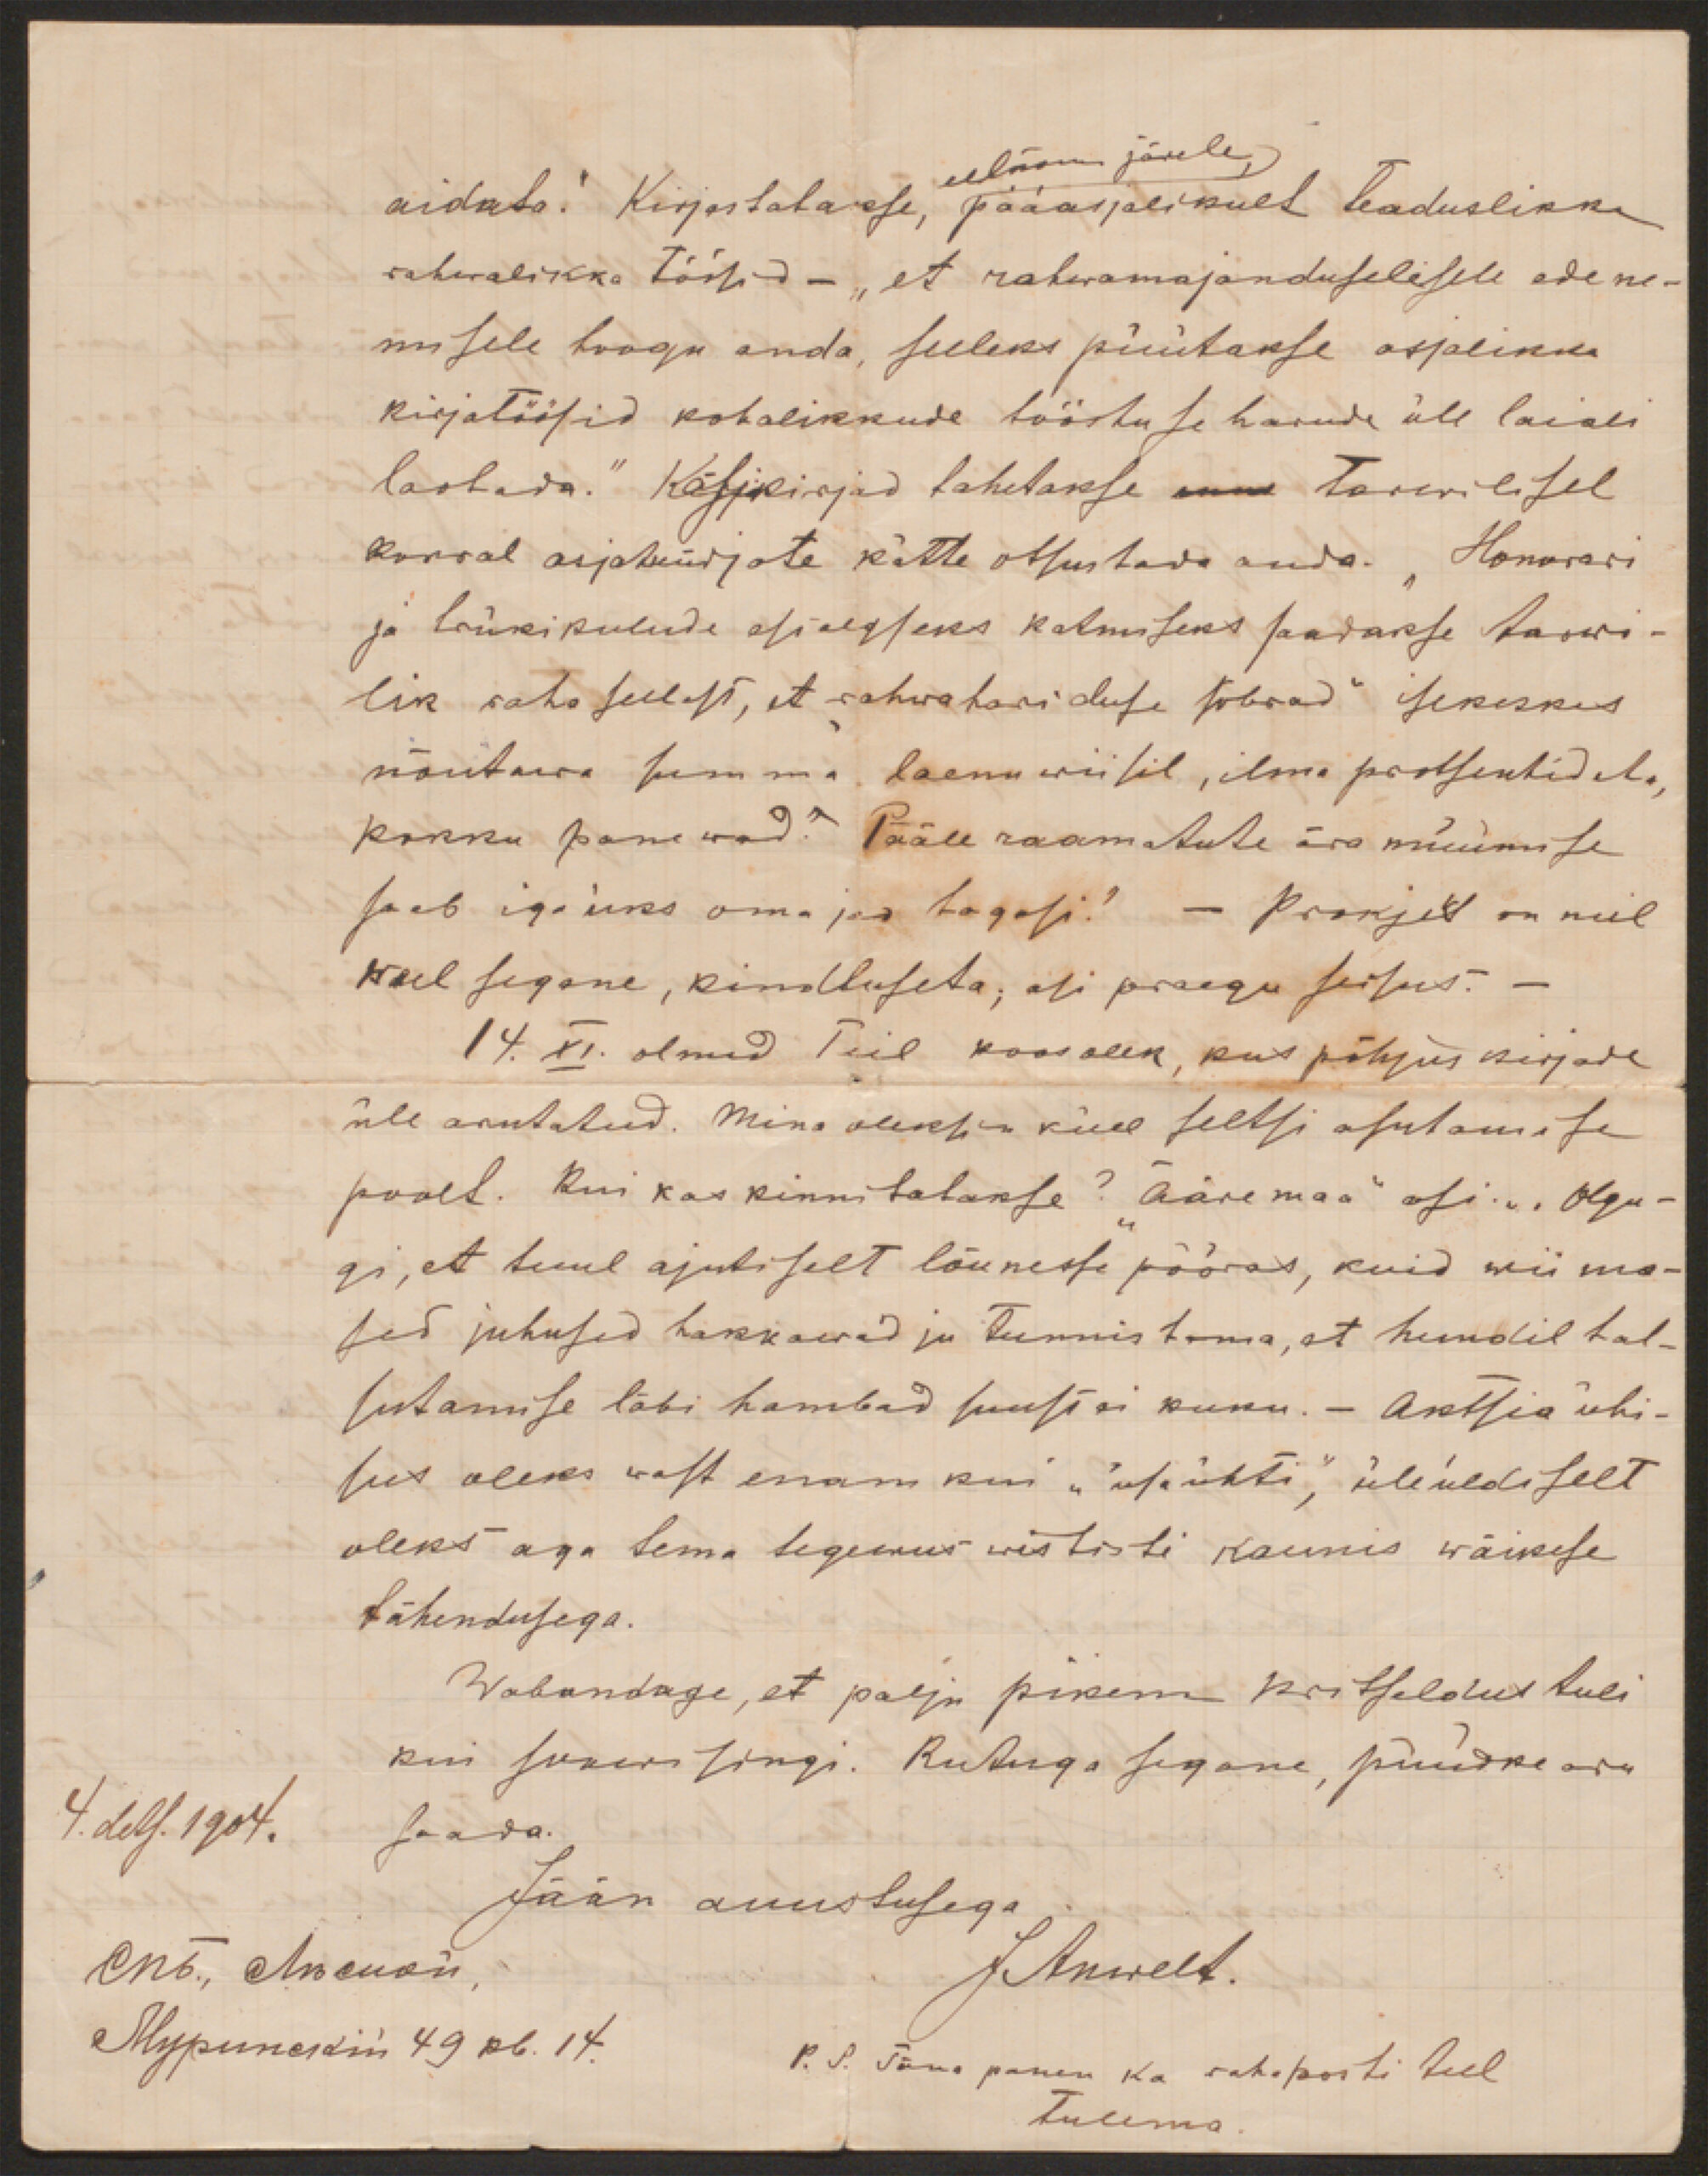 eelnõuu järele,
aidata." Kirjastatakse, pääasjalikult teaduslikka
rahwalikka töösid — „et rahwamajanduselisele edene-
misele hoogu anda, selleks püütakse asjalikka
kirjatöösid kohalikkude tööstuse harude üle laiali
laotada." Käsikirjad tahetakse tarwilisel
korral asjatundjate kätte otsustada anda. „Honorari
ja trükikulude asiaegseks katmiseks saadakse tarwi-
lik raha seeläbi, et „rahwahariduse sõbrad" isekeskes
nõutawa summa laenuwiisil, ilma protsentideta,
kokku panewad." Pääle raamatute ära müümise
saab igaüks oma jao tagasi." — Prokjekt on neil
weel segane, kindluseta; asi praegu seisus. —
14. XI. olnud Teil koosolek, kus põhjuskirjade
üle arutatud. Mina oleksin küll seltsi asutamise
poolt. Kui kas kinnitatakse? „Ääremaa" asi... Olgu-
gi, et tuul ajutiselt lõunesse pööras, kuid wiima-
sed juhused hakkawad ju tunnistama, et hundil tal-
sutamise läbi hambad suust ei kuku. — Aktsia ühi-
sus oleks wast enam kui „üsa ühti", üleüldiselt
oleks aga tema tegewus wististi kaunis wäikese
tähendusega.
Wabandage, et palju pikem kritseldus tuli
kui soowisingi. Rutuga segane, püüdke aru
saada.
4. dets. 1904.
Jään auustusega
J Anwelt.
Спб., Лѣсной,
Муринскій 49 кв. 14.
P. S. Täna panen ka raha posti teel
tulema.